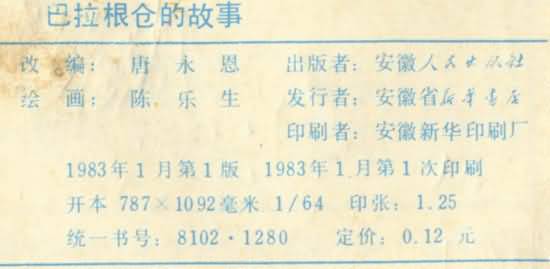 巴拉根仓的故事
改 编：唐 永 恩 出版者：安徽人民出版社
绘 画：陈 乐 生 发行者：安徽省新华书店
印刷者：安徽新华印刷厂
1983年1月第1版 1983年1月第1次印刷
开本 787×1092毫米 1/64 印张：1.25
统一书号：8102·1280 定价：0.12 元